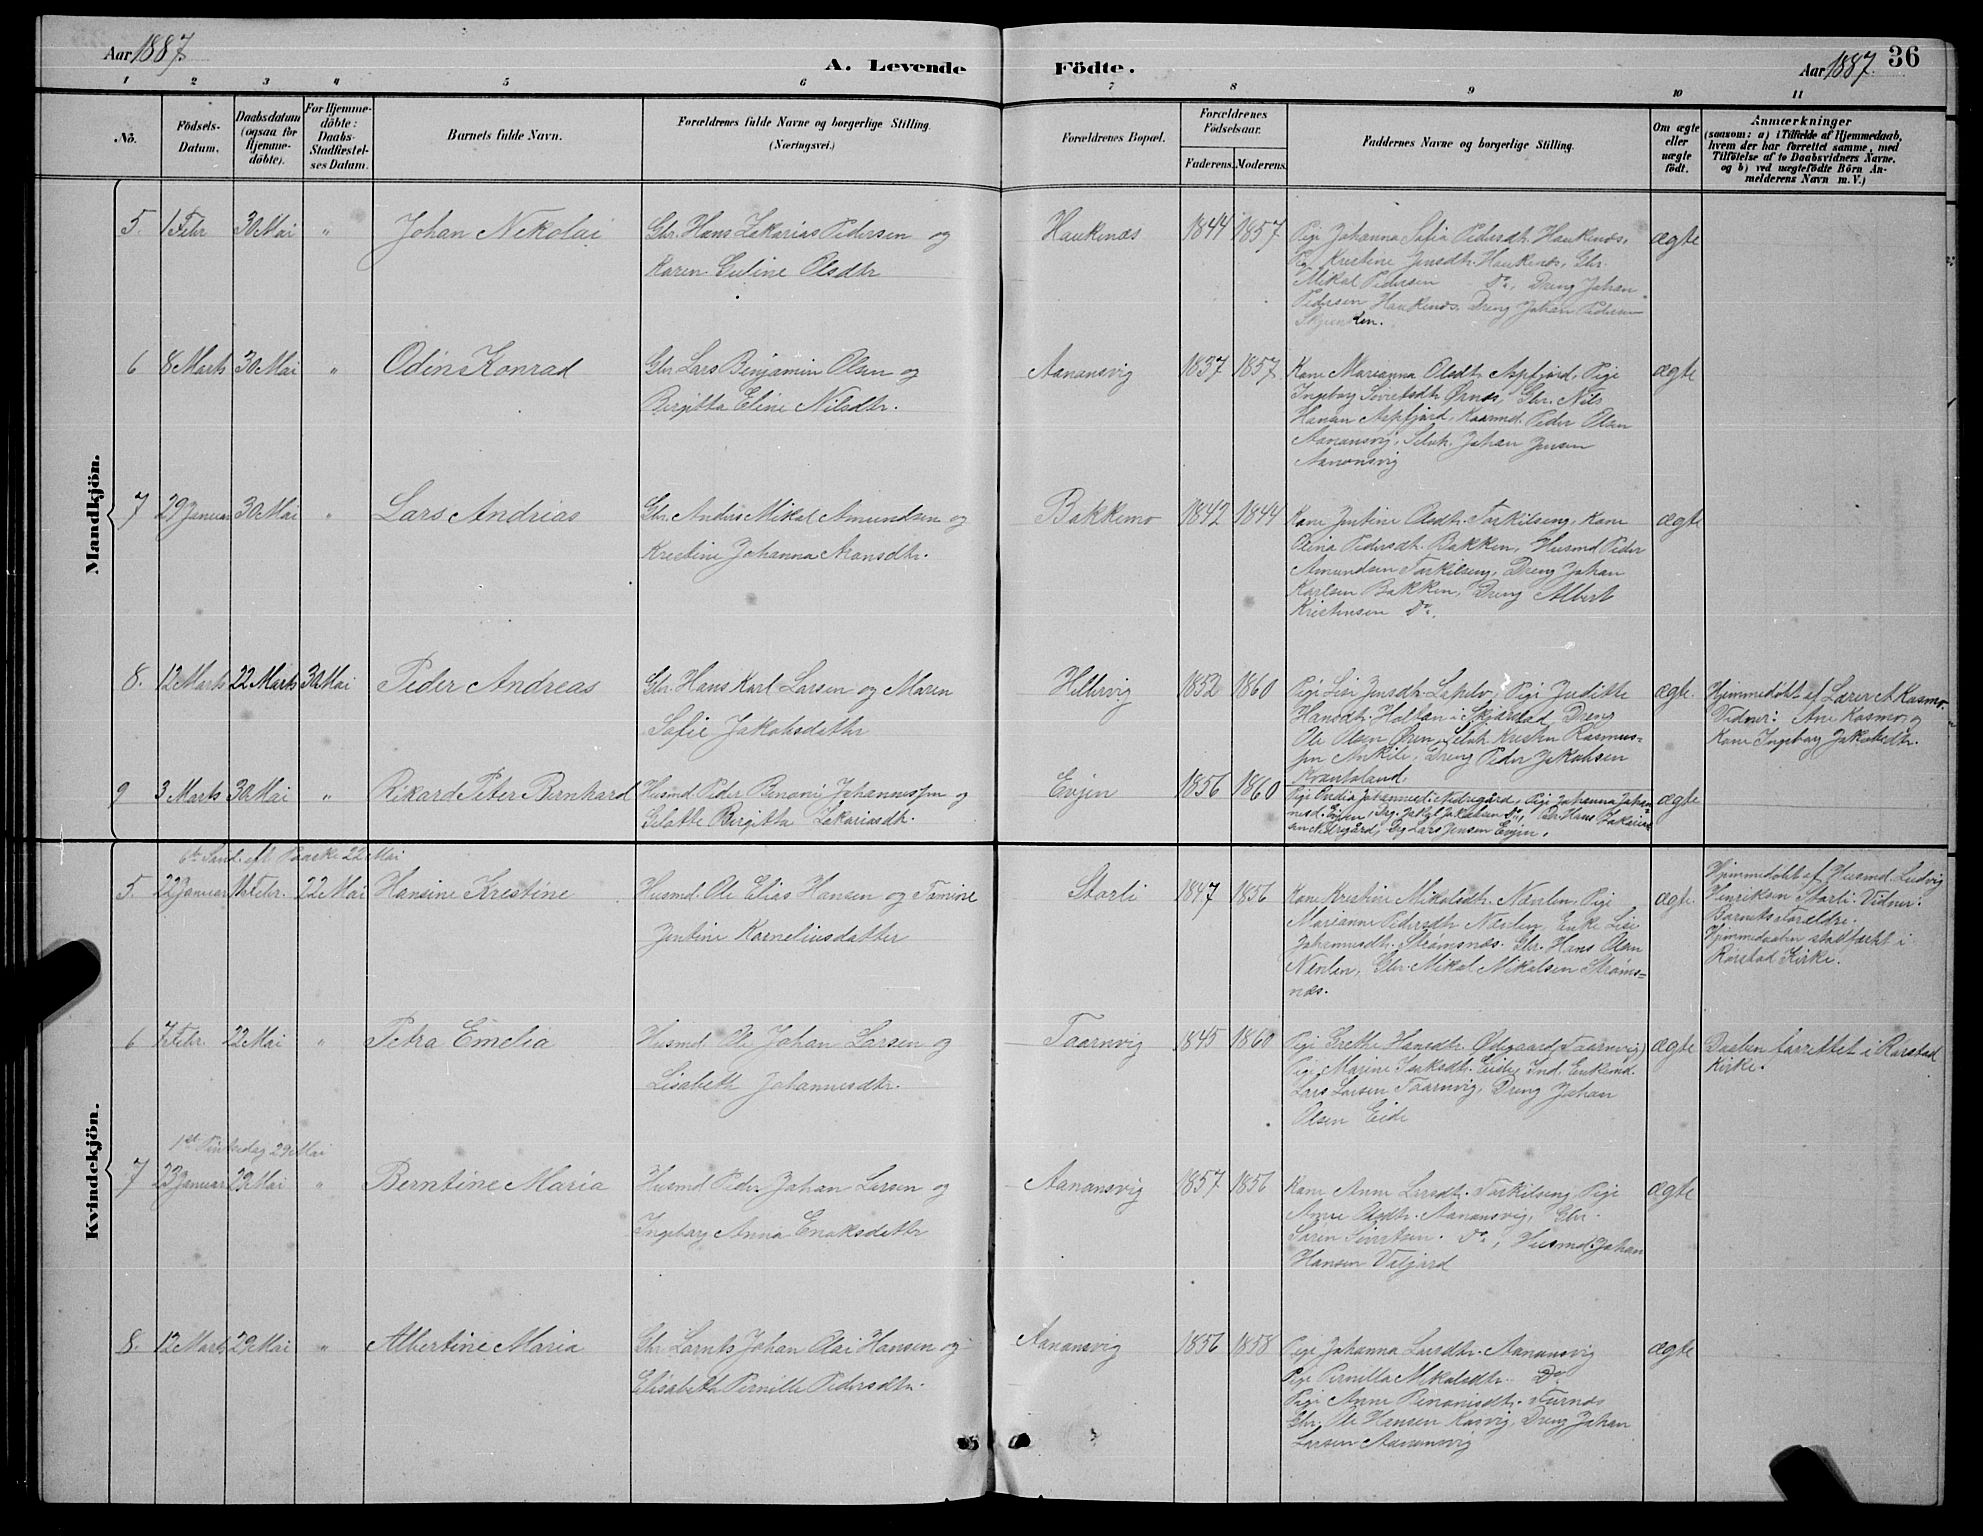 Aar 1887.
A. Levende Födte.
Aar 1887.
36
1 2 3 4 5 6 7 8 9 10 11
No.
Födsels-
Datum.
Daabsdatum
(ogsaa for
Hjemme-
döbte).
For Hjemme-
döbte:
Daabs-
Stadfæstel-
ses Datum.
Barnets fulde Navn.
Forældrenes fulde Navne og borgerlige Stilling.
(Næringsvei.)
Forældrenes Bopæl.
Forældrenes
Födselsaar.
Faderens. Moderens.
Faddernes Navne og borgerlige Stilling.
Om ægte
eller
uægte
födt.
Anmærkninger
(saasom: a) i Tilfælde af Hjemmedaab,
hvem der har forrettet samme, med
Tilföielse af to Daabsvidners Navne.
og b) ved uægtefödte Börn An-
melderens Navn m. V.)
Mandkjön.
5. 1 Febr 30 Mai " Johan Nikolai
Gbr. Hans Zakarias Pedersen og
Karen Guline Olsdtr
Haukenæs 1844 1857
Pige Johanna Sofia Pedersdt. Haukenæs,
Pig. Kristine Jensdtr. Haukenæs, Gbr.
Mikal Pedersen Do, Dreng Johan
Pedersen Haukenæs, Dreng Johan Pedersen
ægte
6 8 Marts 30 Mai " Odin Konrad
Gbr Lars Benjamin Olsen og
Birgitta Eline Nilsdtr.
Aanansvig 1837 1857
Kone Marianna Olsdtr. Aspfjord, Pige
Ingeborg Sivertsdtr Ørnes, Gbr. Nils
Hansen Aspfjord, Kaarmd. Peder Olsen
Aanansvig, Selvh. Johan Jensen
Aanansvig
ægte
7 29 Januar 30 Mai " Lars Andreas
Gbr. Anders Mikal Amundsen og
Kristine Johanna Aronsdtr.
Bakkemo 1842 1844
Kone Jentine Olsdtr. Torkilseng, Kone
Olina Pedersdtr. Bakken, Husmd Peder
Amundsen Torkilseng, Dreng Johan
Karlsen Bakken, Dreng Albert
Kristensen Do.
ægte
8. 12 Marts 22 Marts 30 Mai Peder Andreas
Gbr. Hans Karl Larsen og Maren
Sofie Jakobsdatter
1852 1860
Pige Lise Jensdtr. Pige Juditte
Hansdtr. i Skjerstad, Dreng
Ole Olsen Øien, Selvh Kristen Rasmus-
sen Dreng Peder Jakobsen
ægte.
Hjemmedøbt af Lærer A Kosmo.
Vidner: Ane Kosmo og
Kone Ingeborg Jakobsdtr.
9 3 Marts 30 Mai " Rikard Peter Bernhard
Husmd. Peder Benoni Johannessen og
Birgitta Zakariasdtr.
Evjen 1856 1860
Nedregård, Pige Johanna Johan-
nesd. Evjen, Do, Gbr. Hans Zakarias-
sen Nedregård, Gbr Lars Jensen Evjen.
ægte
Kvindekjön.
6te Sönd. eft. Paaske 22 Mai
5. 22 Januar Febr. 22 Mai Hansine Kristine
Husmd. Ole Elias Hansen og Tomine
Jentine Korneliusdatter
Storli 1847 1856
Kone Kristine Mikalsdtr. Nævlen, Pige
Marianne Pedersdtr. Nevlen, Enke Lise
Johannesdtr. Strømsnæs. Gbr. Hans Olsen
Nevlen, Gbr Mikal Mikalsen Strøms-
næs.
ægte.
Hjemmedöbt af Husmd. Ludvig
Henriksen Storli. Vidner:
Barnets Forældre.
Hjemmedaaben stadfæstet i
Rørstad Kirke.
6 7 Febr. 22 Mai " Petra Emelia
Husmd. Ole Johan Larsen og
Lisabeth Johannesdtr.
Taarnvig 1845 1860
Pige Grethe Hansdtr. Ødegaard (Taarnvig)
Pige Marine Isaksdtr. Eide, Ind. Enkemd.
Lars Larsen Taarnvig, Dreng Johan
Olsen Eide
ægte
Daaben forrettet i Rørstad
Kirke.
1st Pintsedag 29 Mai
7 23 Januar 29 Mai " Berntine Maria
Husmd Peder Johan Larsen og
Ingeborg Anna Enoksdatter
Aanansvig 1857 1856
Kone Anne Larsdtr. Torkilseng, Pige
Anne Olsdtr. Aanansvig, Gbr.
Søren Sivertsen. Do, Husmd. Johan
Hansen
ægte
8. 12 Marts 29 Mai " Albertine Maria
Gbr. Lornts Johan Olai Hansen og
Elisabeth Pernille Pedersdtr.
Aanansvig 1856 1858
Pige Johanna Larsdtr. Aanansvig
Pige Pernilla Mikalsdtr. Do
Pige Anne Benonisdtr.
Gbr. Ole Hansen Kosvig, Dreng Johan
Larsen Aanansvig
ægte